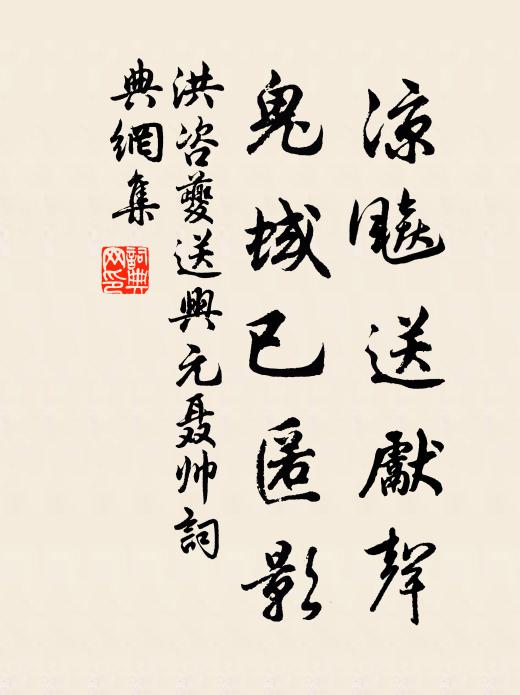 涼飈送獻聲
鬼域已匿影
洪咨夔送興元聂帅詞
典網集
詞典網印